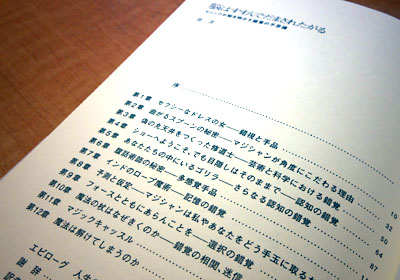 脳はすすんでだまされたがる
マジックが解き明かす錯覚の不思議
目次
序
第1章 セクシーなドレスの女——錯視と手品 10
第2章 曲がるスプーンの秘密——マジシャンが角度にこだわる理由 32
第3章 偽の丸天井をつくった修道士——芸術と科学における錯覚 50
第4章 ショーへようこそ、でも目隠しはそのままで——認知の錯覚
第5章 あなたたちの中にいるゴリラ——さらなる認知の錯覚
第6章 腹話術師の秘密——多感覚手品
第7章 インドのロープ魔術——記憶の錯覚
第8章 予測と仮定——マジシャンは私やあなたをどう手玉に取るか
第9章 フォースとともにあらんことを——選択の錯覚
第10章 魔法の杖はなぜきくのか——錯覚の相関、迷信
第11章 マジックキャッスル
第12章 魔法は解けてしまうのか
エピローグ 人生
謝辞